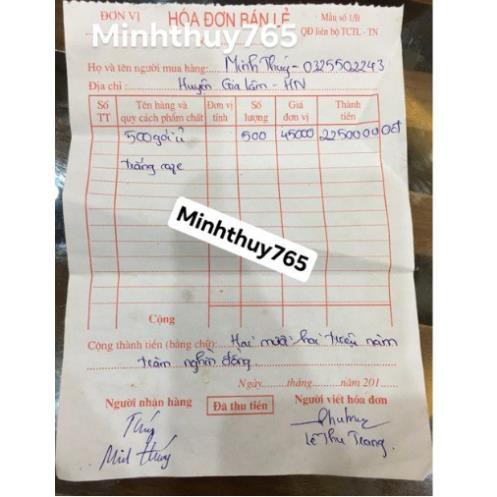 ĐƠN VỊ HÓA ĐƠN BÁN LẺ Mẫu số 1/B
QĐ liên bộ TCTL - TN
Minhthuy765
Họ và tên người mua hàng: Minh Thúy - 0325502243
Địa chỉ: Huyện Gia Lâm - HN
Số TT Tên hàng và quy cách phẩm chất Đơn vị tính Số lượng Giá đơn vị Thành tiền
500 gói ủ 500 45000 22500000
trắng
Minhthuy765
Cộng
Cộng thành tiền (bằng chữ): Hai mươi hai triệu năm
trăm nghìn đồng
Ngày......tháng......năm 201...
Người nhận hàng Đã thu tiền Người viết hóa đơn
Thúy
Minh Thúy Lê Thu Trang